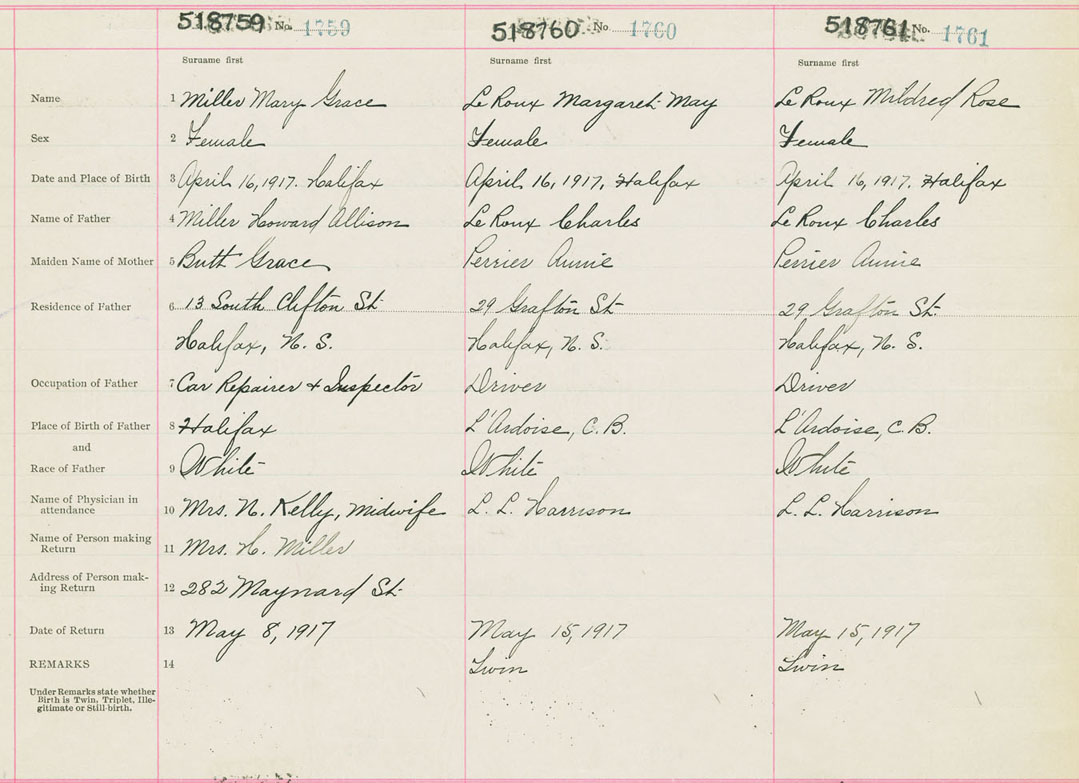 518759 No. 1759 518760 No. 1760 518761 No. 1761
Surname first Surname first Surname first
Name 1 Miller Mary Grace Le Roux Margaret May Le Roux Mildred Rose
Sex 2 Female Female Female
Date and Place of Birth 3 April 16, 1917. Halifax April 16, 1917, Halifax April 16, 1917. Halifax
Name of Father 4 Miller Howard Allison Le Roux Charles Le Roux Charles
Maiden Name of Mother 5 Butt Grace Perrier Annie Perrier Annie
Residence of Father 6 13 South Clifton St 29 Grafton St 29 Grafton St.
Halifax, N. S. Halifax, N. S. Halifax, N. S.
Occupation of Father 7 Car Repairer + Inspector Driver Driver
Place of Birth of Father 8 Halifax L'Ardoise, C. B. L'Ardoise, C. B.
and
Race of Father 9 White White White
Name of Physician in
attendance 10 Mrs. N. Kelly, midwife L. L. Harrison L. L. Harrison
Name of Person making
Return 11 Mrs. H. Miller
Address of Person mak-
ing Return 12 282 Maynard St.
Date of Return 13 May 8, 1917 May 15, 1917 May 15, 1917
REMARKS 14 Twin Twin
Under Remarks state whether
Birth is Twin, Triplet, Ille-
gitimate or Still-birth.